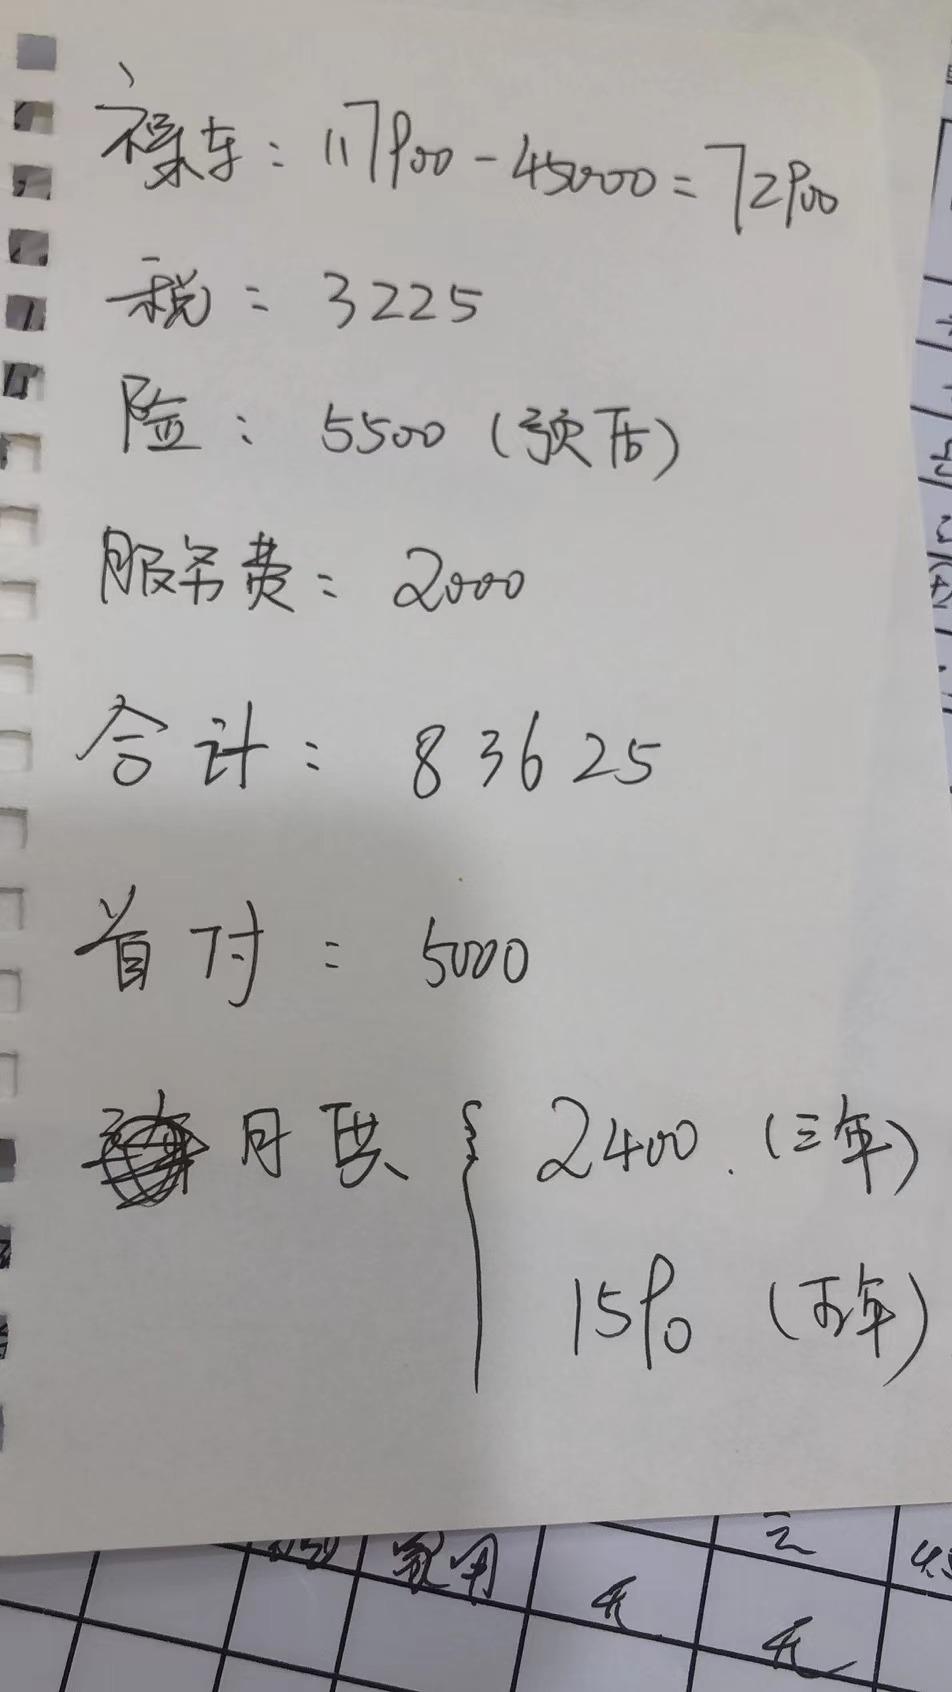 裸车：117900-45000=72900
税：3225
险：5500（预估）
服务费：2000
合计：83625
首付：5000
月供 { 2400.（三年）
1590（五年）
家用
无
无